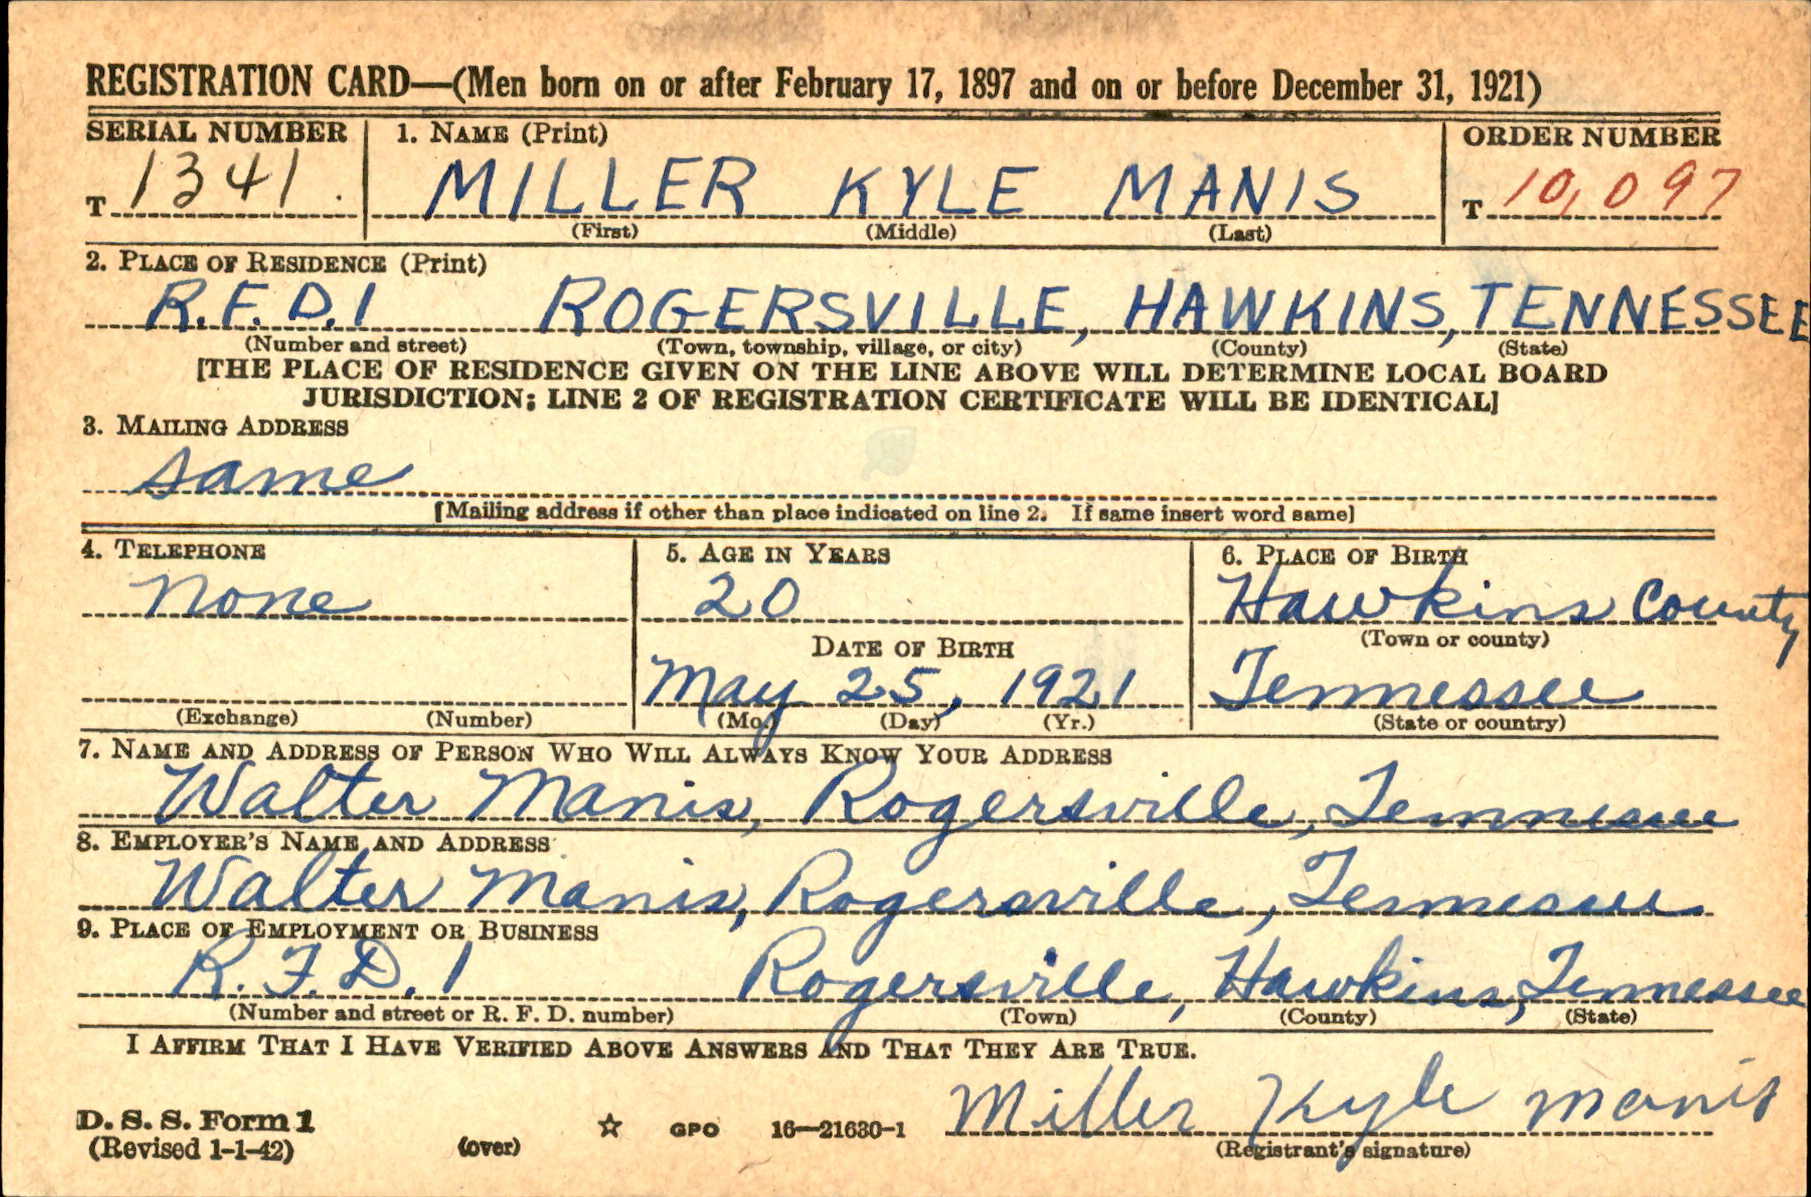 REGISTRATION CARD—(Men born on or after February 17, 1897 and on or before December 31, 1921)
SERIAL NUMBER 1. NAME (Print) ORDER NUMBER
T 1341 MILLER KYLE MANIS T 10,097
(First) (Middle) (Last)
2. PLACE OF RESIDENCE (Print)
R.F.D.1 ROGERSVILLE, HAWKINS, TENNESSEE
(Number and street) (Town, township, village, or city) (County) (State)
[THE PLACE OF RESIDENCE GIVEN ON THE LINE ABOVE WILL DETERMINE LOCAL BOARD
JURISDICTION; LINE 2 OF REGISTRATION CERTIFICATE WILL BE IDENTICAL]
3. MAILING ADDRESS
same
[Mailing address if other than place indicated on line 2. If same insert word same]
4. TELEPHONE 5. AGE IN YEARS 6. PLACE OF BIRTH
none 20 Hawkins County
DATE OF BIRTH (Town or county)
May 25, 1921 Tennessee
(Exchange) (Number) (Mo.) (Day) (Yr.) (State or country)
7. NAME AND ADDRESS OF PERSON WHO WILL ALWAYS KNOW YOUR ADDRESS
Walter Manis, Rogersville, Tennessee
8. EMPLOYER'S NAME AND ADDRESS
Walter Manis, Rogersville, Tennessee
9. PLACE OF EMPLOYMENT OR BUSINESS
R.F.D. 1 Rogersville, Hawkins, Tennessee
(Number and street or R. F. D. number) (Town) (County) (State)
I AFFIRM THAT I HAVE VERIFIED ABOVE ANSWERS AND THAT THEY ARE TRUE.
D. S. S. Form 1 ☆ GPO 16—21630-1 Miller Kyle Manis
(Revised 1-1-42) (over) (Registrant's signature)